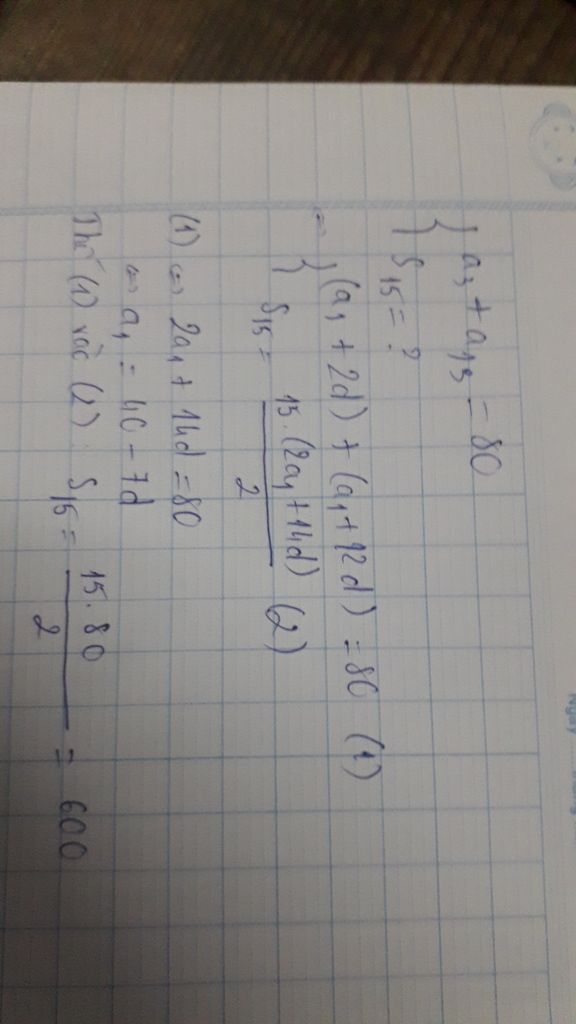 { a₃ + a₁₃ = 80
{ S₁₅ = ?
⇔ { (a₁ + 2d) + (a₁ + 12d) = 80 (1)
{ S₁₅ = 15.(2a₁ + 14d) / 2 (2)
(1) ⇔ 2a₁ + 14d = 80
⇔ a₁ = 40 - 7d
Thế (1) vào (2): S₁₅ = 15.80 / 2 = 600
Ngày